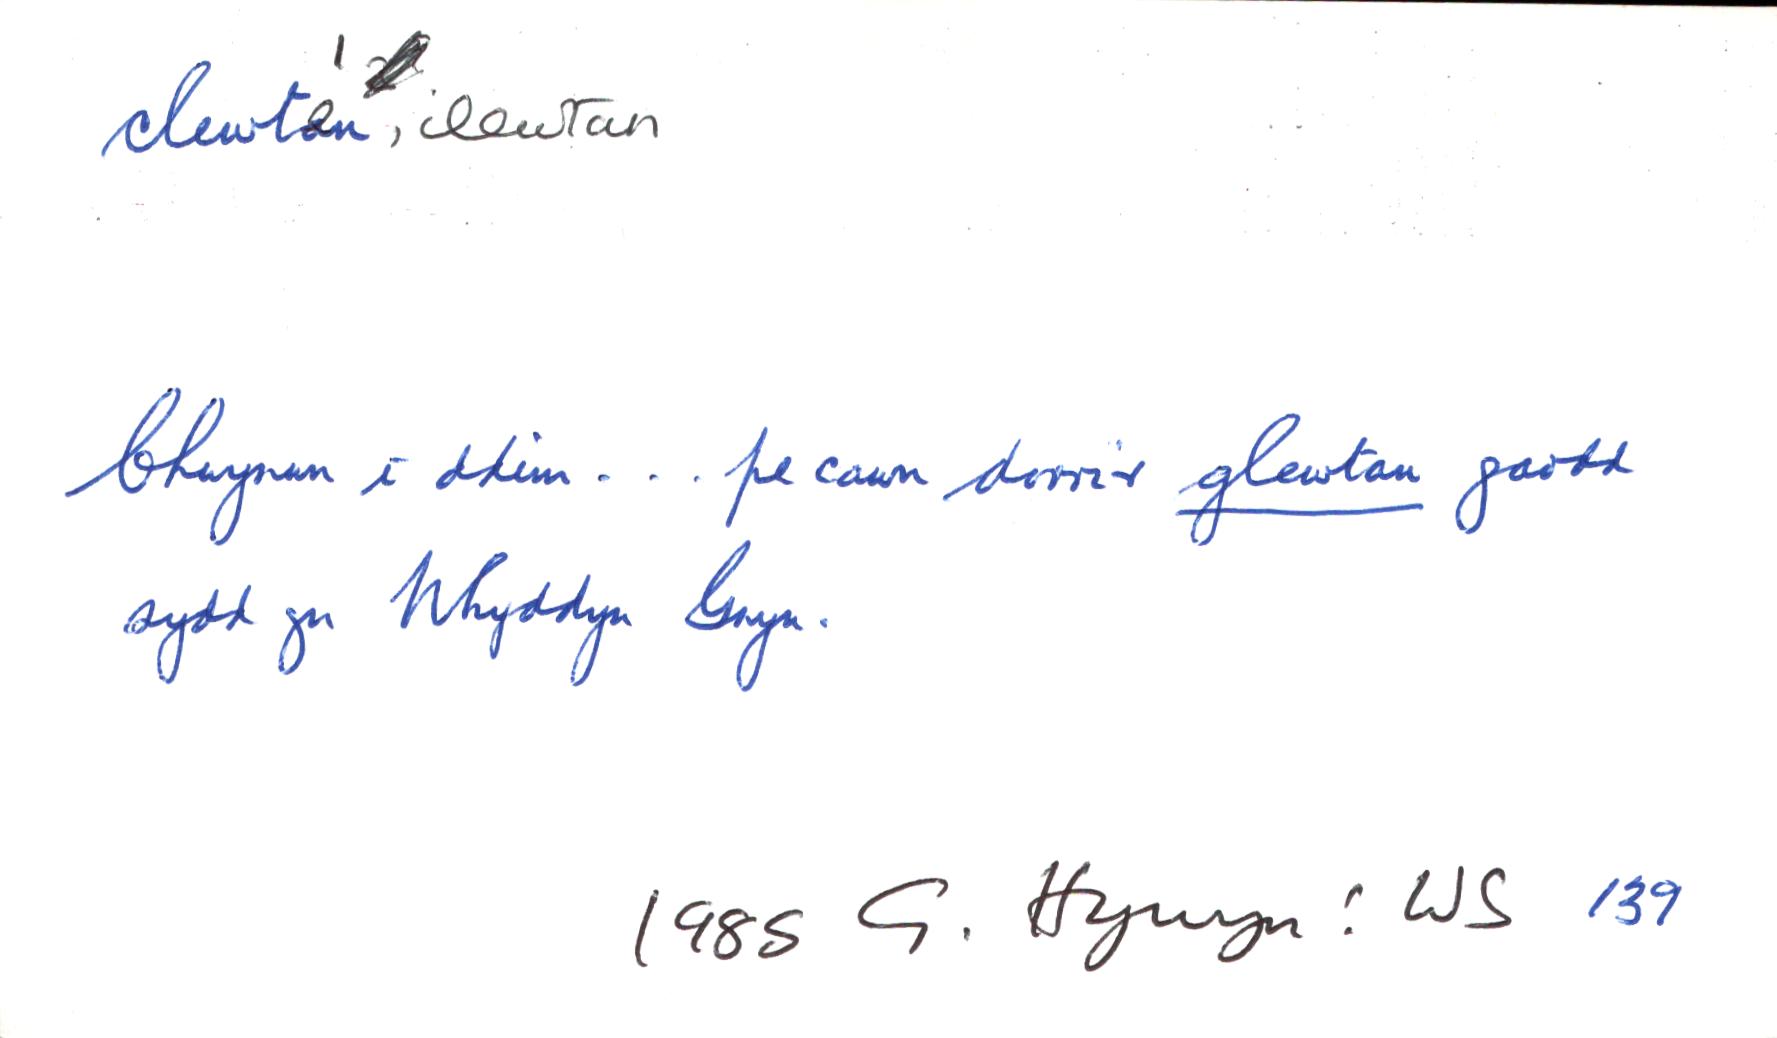 clewten¹, clewtan
Chwynwn i ddim . . . pe cawn dorri'r glewtan gaodd
sydd yn Nhyddyn Gwyn.
1985 G. Hywyn : WS 139